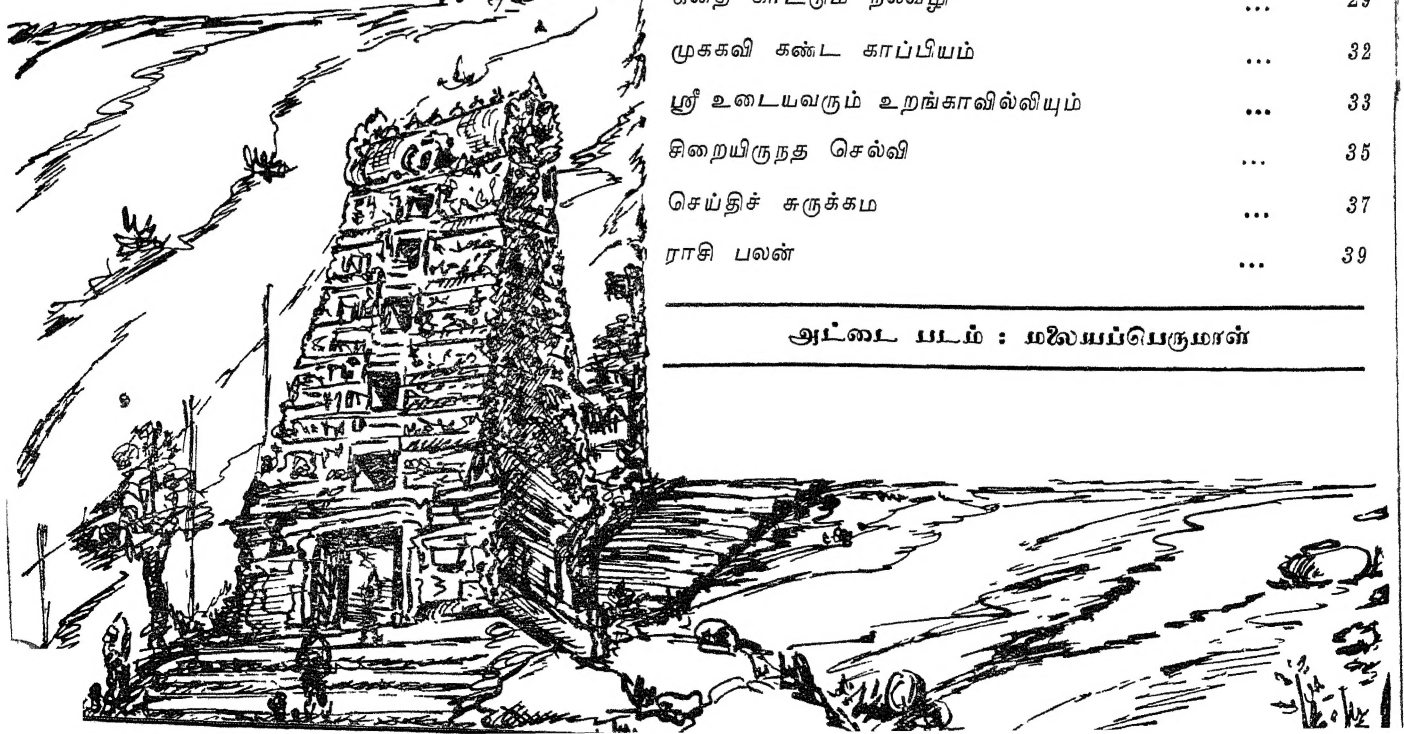 கதை காட்டும் நல்வழி ... 29
முககவி கண்ட காப்பியம் ... 32
ஸ்ரீ உடையவரும் உறங்காவில்லியும் ... 33
சிறையிருநத செல்வி ... 35
செய்திச் சுருக்கம ... 37
ராசி பலன் ... 39
அட்டை படம் : மலையப்பெருமாள்